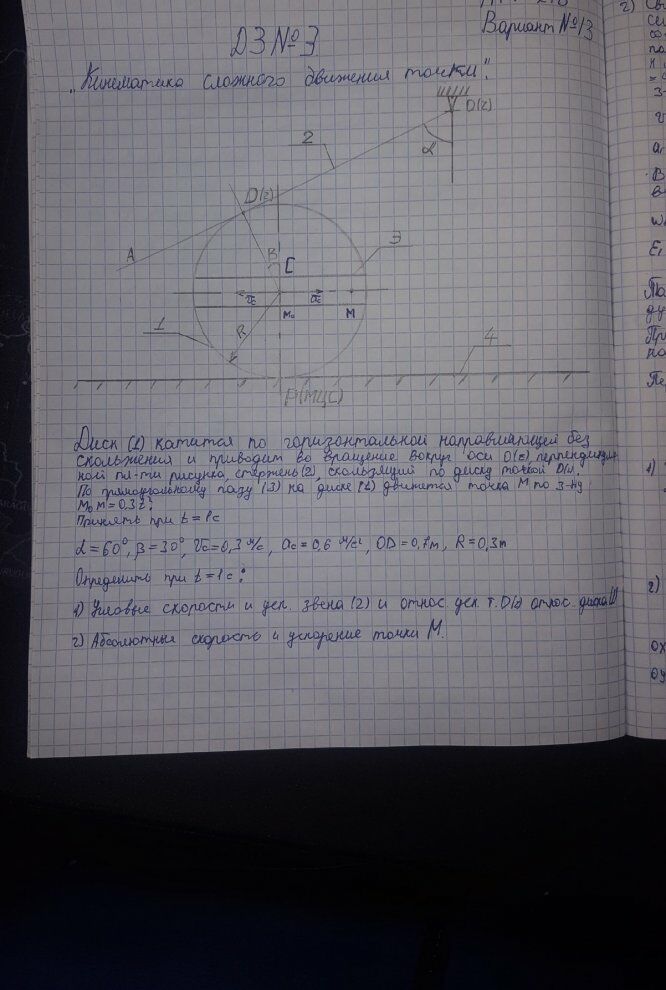 Вариант №13
ДЗ №3
"Кинематика сложного движения точки".
O(z)
2
α
D(2)
A
3
B
C
v̄c
āc
M₀
M
1
R
4
P(МЦС)
Диск (1) катится по горизонтальной направляющей без
скольжения и приводит во вращение вокруг оси O(z), перпендикуляр
ной пл-ти рисунка, стержень (2), скользящий по диску точкой D(2).
По прямоугольному пазу (3) на диске (1) движется точка M по з-ну
M₀M=0,3t²;
Принять при t=1c
α=60°, β=30°, Vc=0,3 м/c, ac=0,6 м/c², OD=0,7м, R=0,3м
Определить при t=1c:
1) Угловые скорости и уск. звена (2) и относ. уск. т. D(2) относ. диска (1)
2) Абсолютные скорость и ускорение точки M.
2)
1)
2)